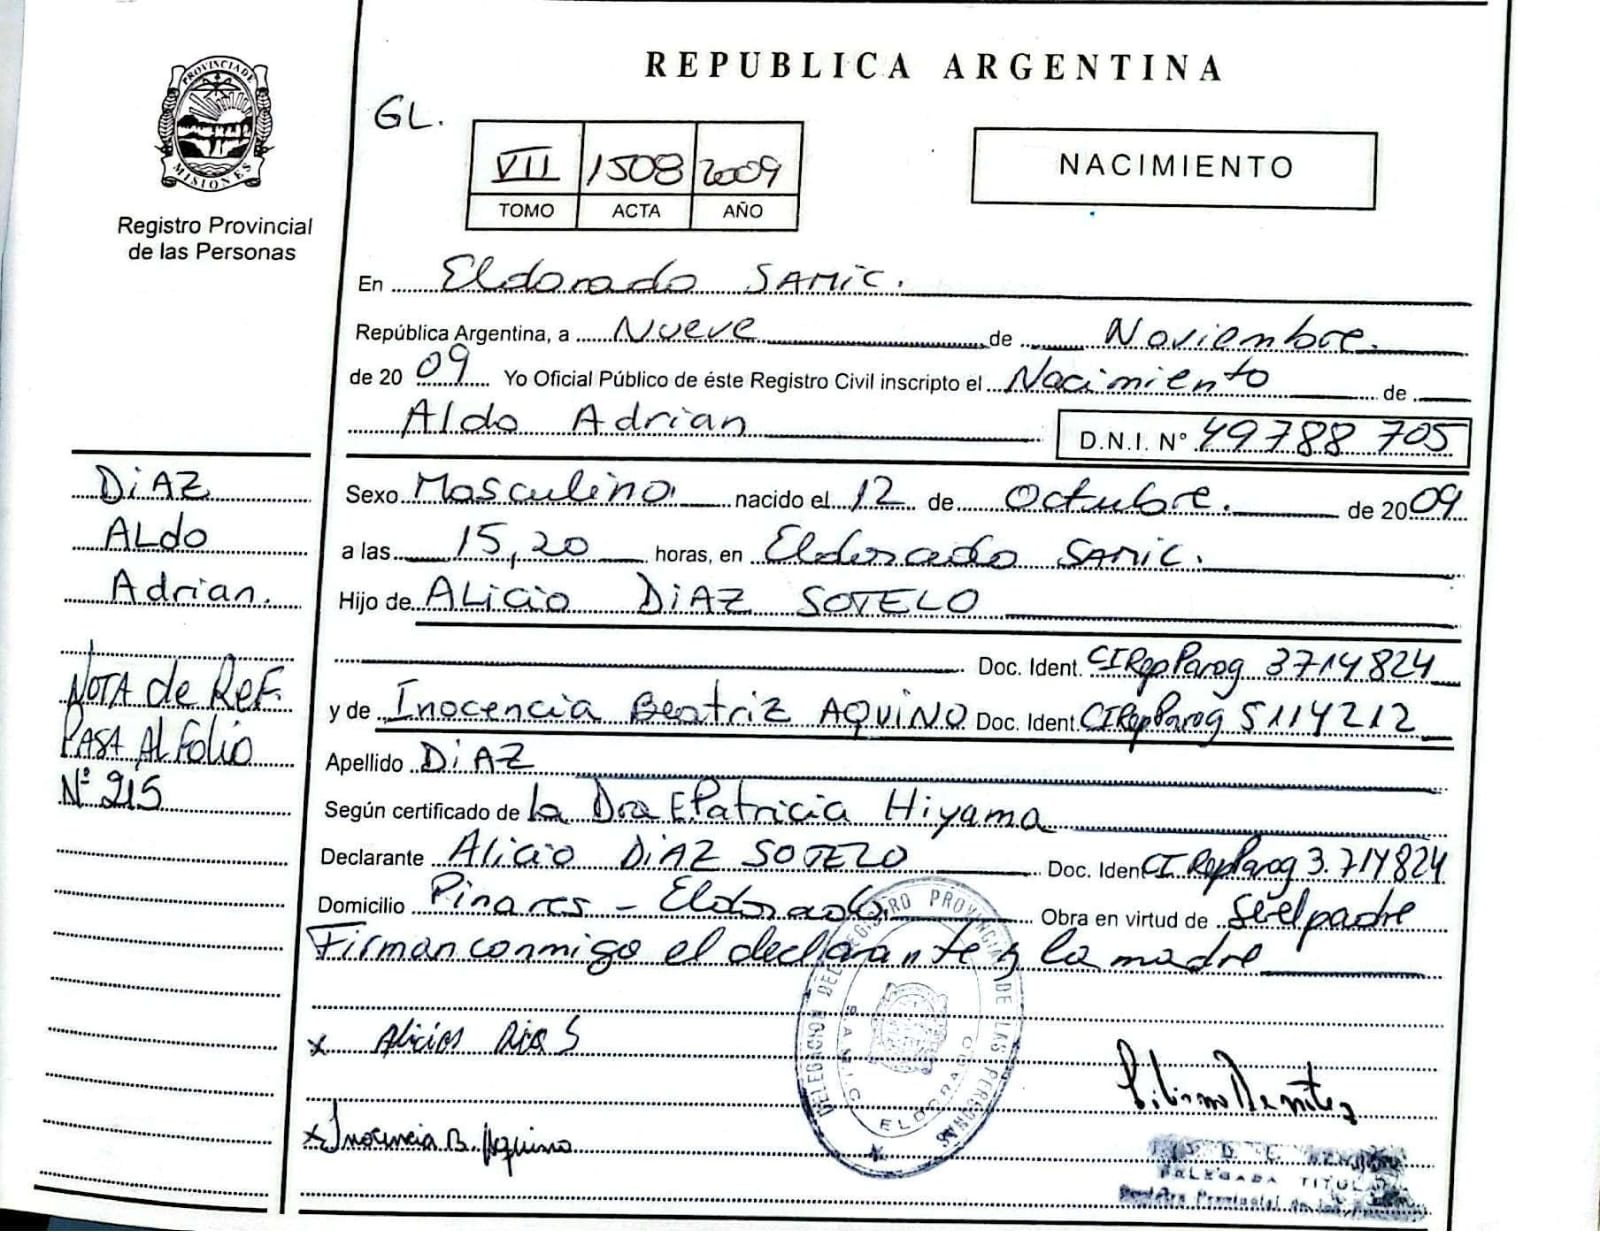 REPUBLICA ARGENTINA
PROVINCIA DE
MISIONES
Registro Provincial
de las Personas
GL.
VII 1508 2009
TOMO ACTA AÑO
NACIMIENTO
En Eldorado SAMIC.
República Argentina, a Nueve de Noviembre.
de 20 09 Yo Oficial Público de éste Registro Civil inscripto el Nacimiento de
Aldo Adrian D.N.I. N° 49788 705
Sexo Masculino nacido el 12 de Octubre. de 20 09
a las 15,20 horas, en Eldorado SAMIC.
Hijo de ALicio DiAZ SOTELO
Doc. Ident. CIRepParag 3714824
y de Inocencia Beatriz AQUINO Doc. Ident. CIRepParag 5114212
Apellido DiAZ
Según certificado de la Dra E Patricia Hiyama
Declarante Alicio DiAZ SOTELO Doc. Ident CI RepParag 3.714824
Domicilio Pinares - Eldorado. Obra en virtud de Ser el padre
Firman conmigo el declarante y la madre
DiAZ
ALdo
Adrian.
NOTA de Ref.
PASA Al Folio
N° 215
x Alicios Dias S
x Inocencia B. Aquino
DELEGACION DEL REGISTRO PROVINCIAL DE LAS PERSONAS
SAMIC ELDORADO
DELEGADA TITULAR